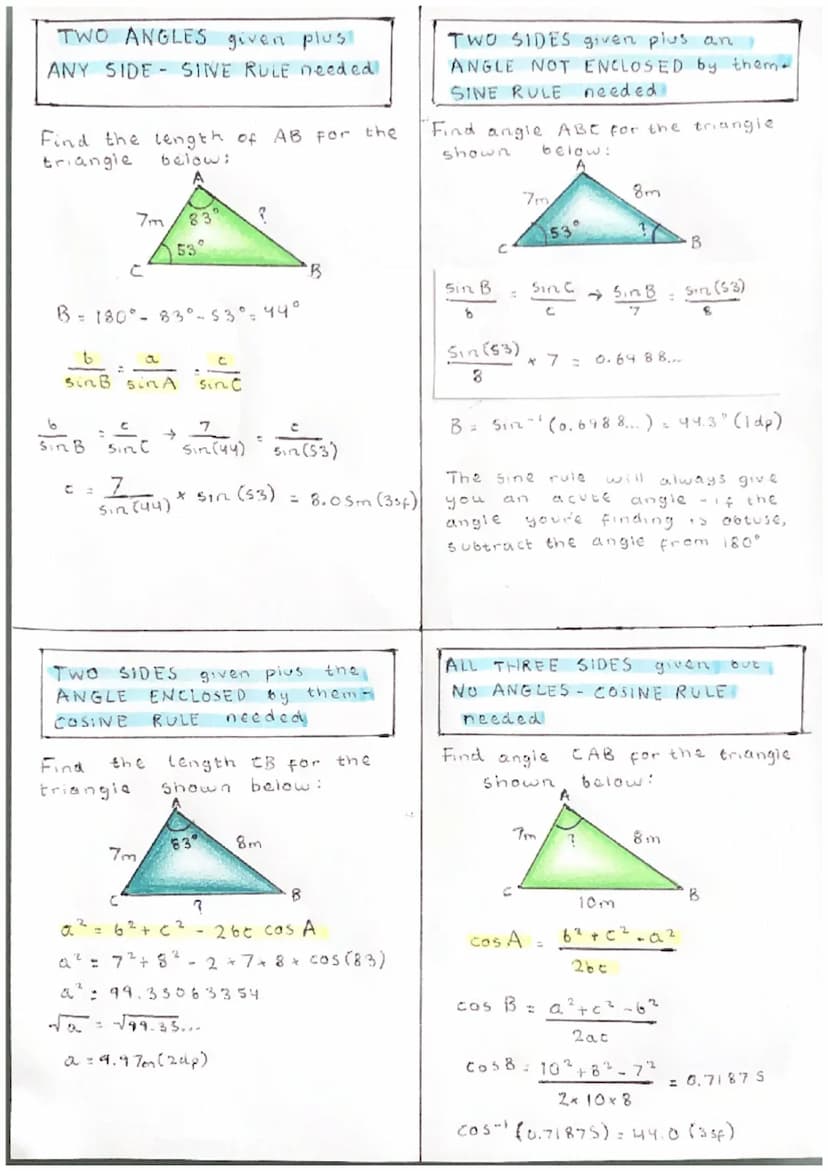 TWO ANGLES given plus
ANY SIDE - SINE RULE needed
Find the length of AB for the
triangle below:
A
7m 83° ?
53°
C B
B = 180° - 83° - 53° = 44°
b/sinB = a/sinA = c/sinC
b/sinB = c/sinC → 7/sin(44) = c/sin(53)
c = 7/sin(44) × sin(53) = 8.05m (3sf)
TWO SIDES given plus an
ANGLE NOT ENCLOSED by them-
SINE RULE needed
Find angle ABC for the triangle
shown below:
A
7m 8m
53° ?
C B
sinB/b = sinC/c → sinB/7 = sin(53)/8
sin(53)/8 × 7 = 0.6988...
B = sin⁻¹(0.6988...) = 44.3° (1dp)
The sine rule will always give
you an acute angle - if the
angle you're finding is obtuse,
subtract the angle from 180°
TWO SIDES given plus the
ANGLE ENCLOSED by them-
COSINE RULE needed
Find the length CB for the
triangle shown below:
A
7m 83° 8m
C ? B
a² = b² + c² - 2bc cos A
a² = 7² + 8² - 2 × 7 × 8 × cos(83)
a² = 99.35063354
√a = √99.35...
a = 9.97m (2dp)
ALL THREE SIDES given but
NO ANGLES - COSINE RULE
needed
Find angle CAB for the triangle
shown below:
A
7m ? 8m
C B
10m
cos A = b² + c² - a²
2bc
cos B = a² + c² - b²
2ac
cosB = 10² + 8² - 7² = 0.71875
2 × 10 × 8
cos⁻¹(0.71875) = 44.0 (3sf)